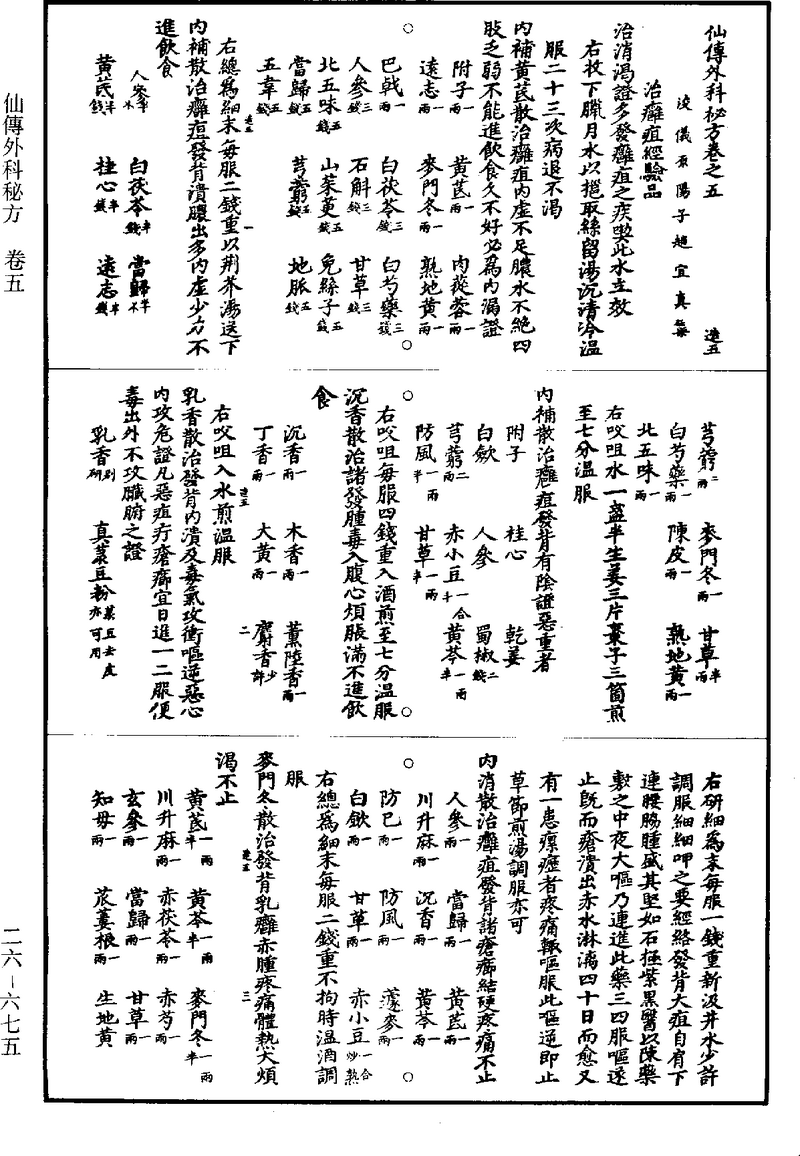 仙傳外科秘方卷之五 遠五
浚儀原陽子趙宜真集
治癰疽經驗品
治消渴證多發癰疽之疾啜此水立效
右收下臘月水以挹取絲留湯沉清冷温
服二十三次病退不渴
內補黃芪散治癰疽內虛不足膿水不絕四
肢乏弱不能進飲食久不好必為內漏證
附子一兩 黃芪一兩 肉蓯蓉一兩
遠志一兩 麥門冬一兩 熟地黃一兩
巴戟一兩 白茯苓三錢 白芍藥三錢
人參三錢 石斛三錢 甘草三錢
北五味五錢 山茱萸五錢 兔絲子五錢
當歸五錢 芎藭五錢 地脈五錢
五韋錢
右總為細末每服二錢重以荆芥湯送下
內補散治癰疽發背潰膿出多內虛少力不
進飲食
人參半 白茯苓半錢 當歸半
黃芪半錢 桂心半錢 遠志半錢
芎藭二兩 麥門冬一兩 甘草半兩
白芍藥一兩 陳皮一兩 熟地黃一兩
北五味一兩
右㕮咀水一盞半生姜三片棗子三箇煎
至七分温服
內補散治癰疽發背有陰證惡重者
附子 桂心 乾姜
白歛 人參 蜀椒二錢
芎藭二兩 赤小豆一合半 黃芩一兩半
防風一兩半 甘草一兩半
右㕮咀每服四錢重入酒煎至七分温服
沉香散治諸發腫毒入腹心煩脹滿不進飲
食
沉香一兩 木香一兩 薰陸香一兩
丁香一兩 大黃一兩 麝香少許
右㕮咀入水煎温服
乳香散治發背內潰及毒氣攻衝嘔逆惡心
內攻危證凡惡疽疔瘡癤宜日進一二服便
毒出外不攻臟腑之證
乳香別研 真菉豆粉菉豆去皮亦可用
右研細為末每服一錢重新汲井水少許
調服細細呷之要經絡發背大疽自肩下
連腰脇腫盛其堅如石極紫黑醫以陳藥
敷之中夜大嘔乃連進此藥三四服嘔遂
止旣而瘡潰出赤水淋漓四十日而愈又
有一患瘰癧者疼痛輒嘔服此嘔逆即止
草節煎湯調服亦可
內消散治癰疽發背諸瘡癤結硬疼痛不止
人參一兩 當歸一兩 黃芪一兩
川升麻一兩 沉香一兩 黃芩一兩
防已一兩 防風一兩 蘧麥一兩
白歛一兩 甘草一兩 赤小豆一合炒熟
右總為細末每服二錢重不拘時温酒調
服
麥門冬散治發背乳癰赤腫疼痛體熱大煩
渴不止
黃芪一兩半 黃芩一兩半 麥門冬一兩半
川升麻一兩 赤茯苓一兩 赤芍一兩
玄參一兩 當歸一兩 甘草一兩
知母一兩 苽蔞根一兩 生地黃
仙傳外科秘方 卷五
二六－六七五